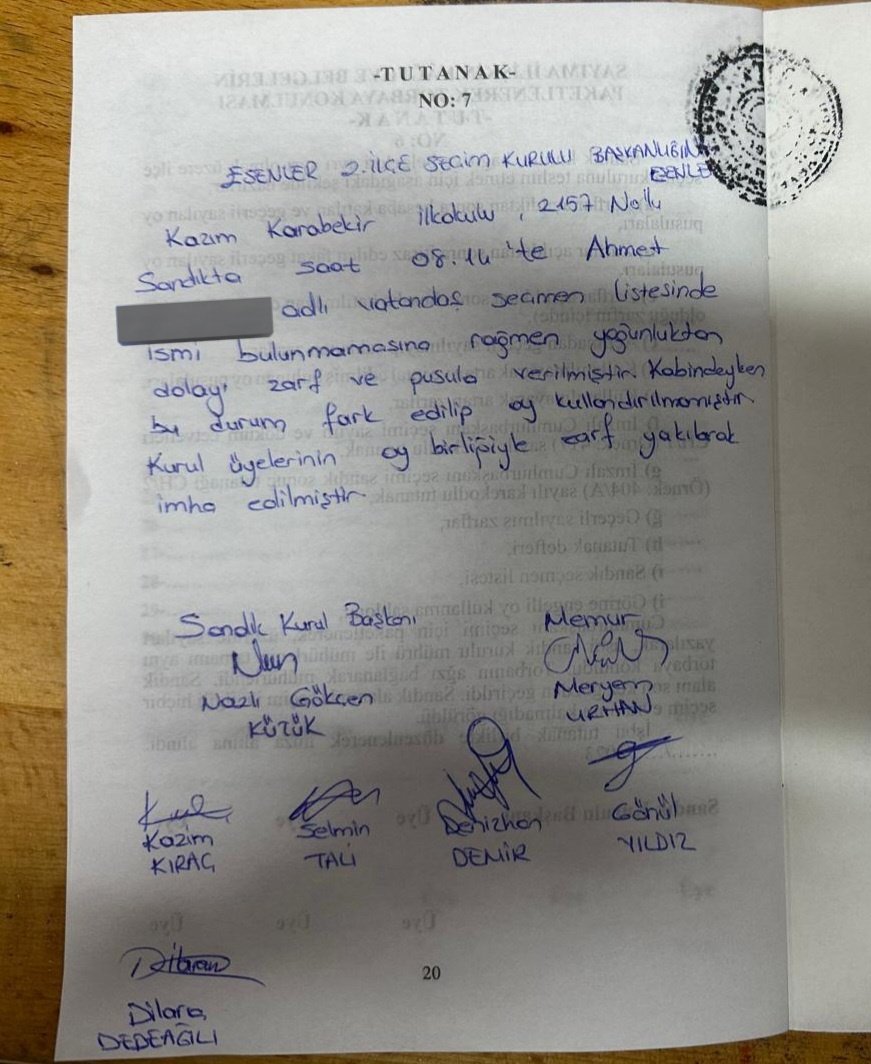 -TUTANAK-
NO: 7
ESENLER 2.İLÇE SEÇİM KURULU BAŞKANLIĞIN
ESENLER
Kazım Karabekir İlkokulu, 2157 No'lu
Sandıkta saat 08.14'te Ahmet
adlı vatandaş seçmen listesinde
ismi bulunmamasına rağmen yoğunluktan
dolayı zarf ve pusula verilmiştir. Kabindeyken
bu durum fark edilip oy kullandırılmamıştır.
Kurul üyelerinin oy birliğiyle zarf yakılarak
imha edilmiştir.
Sandık Kurul Başkanı
Memur
Nazlı Gökçen
KÜTÜK
Meryem
URHAN
Kazım
KIRAÇ
Selmin
TALİ
Denizhan
DEMİR
Gönül
YILDIZ
20
Dilara
DEDEAĞILI